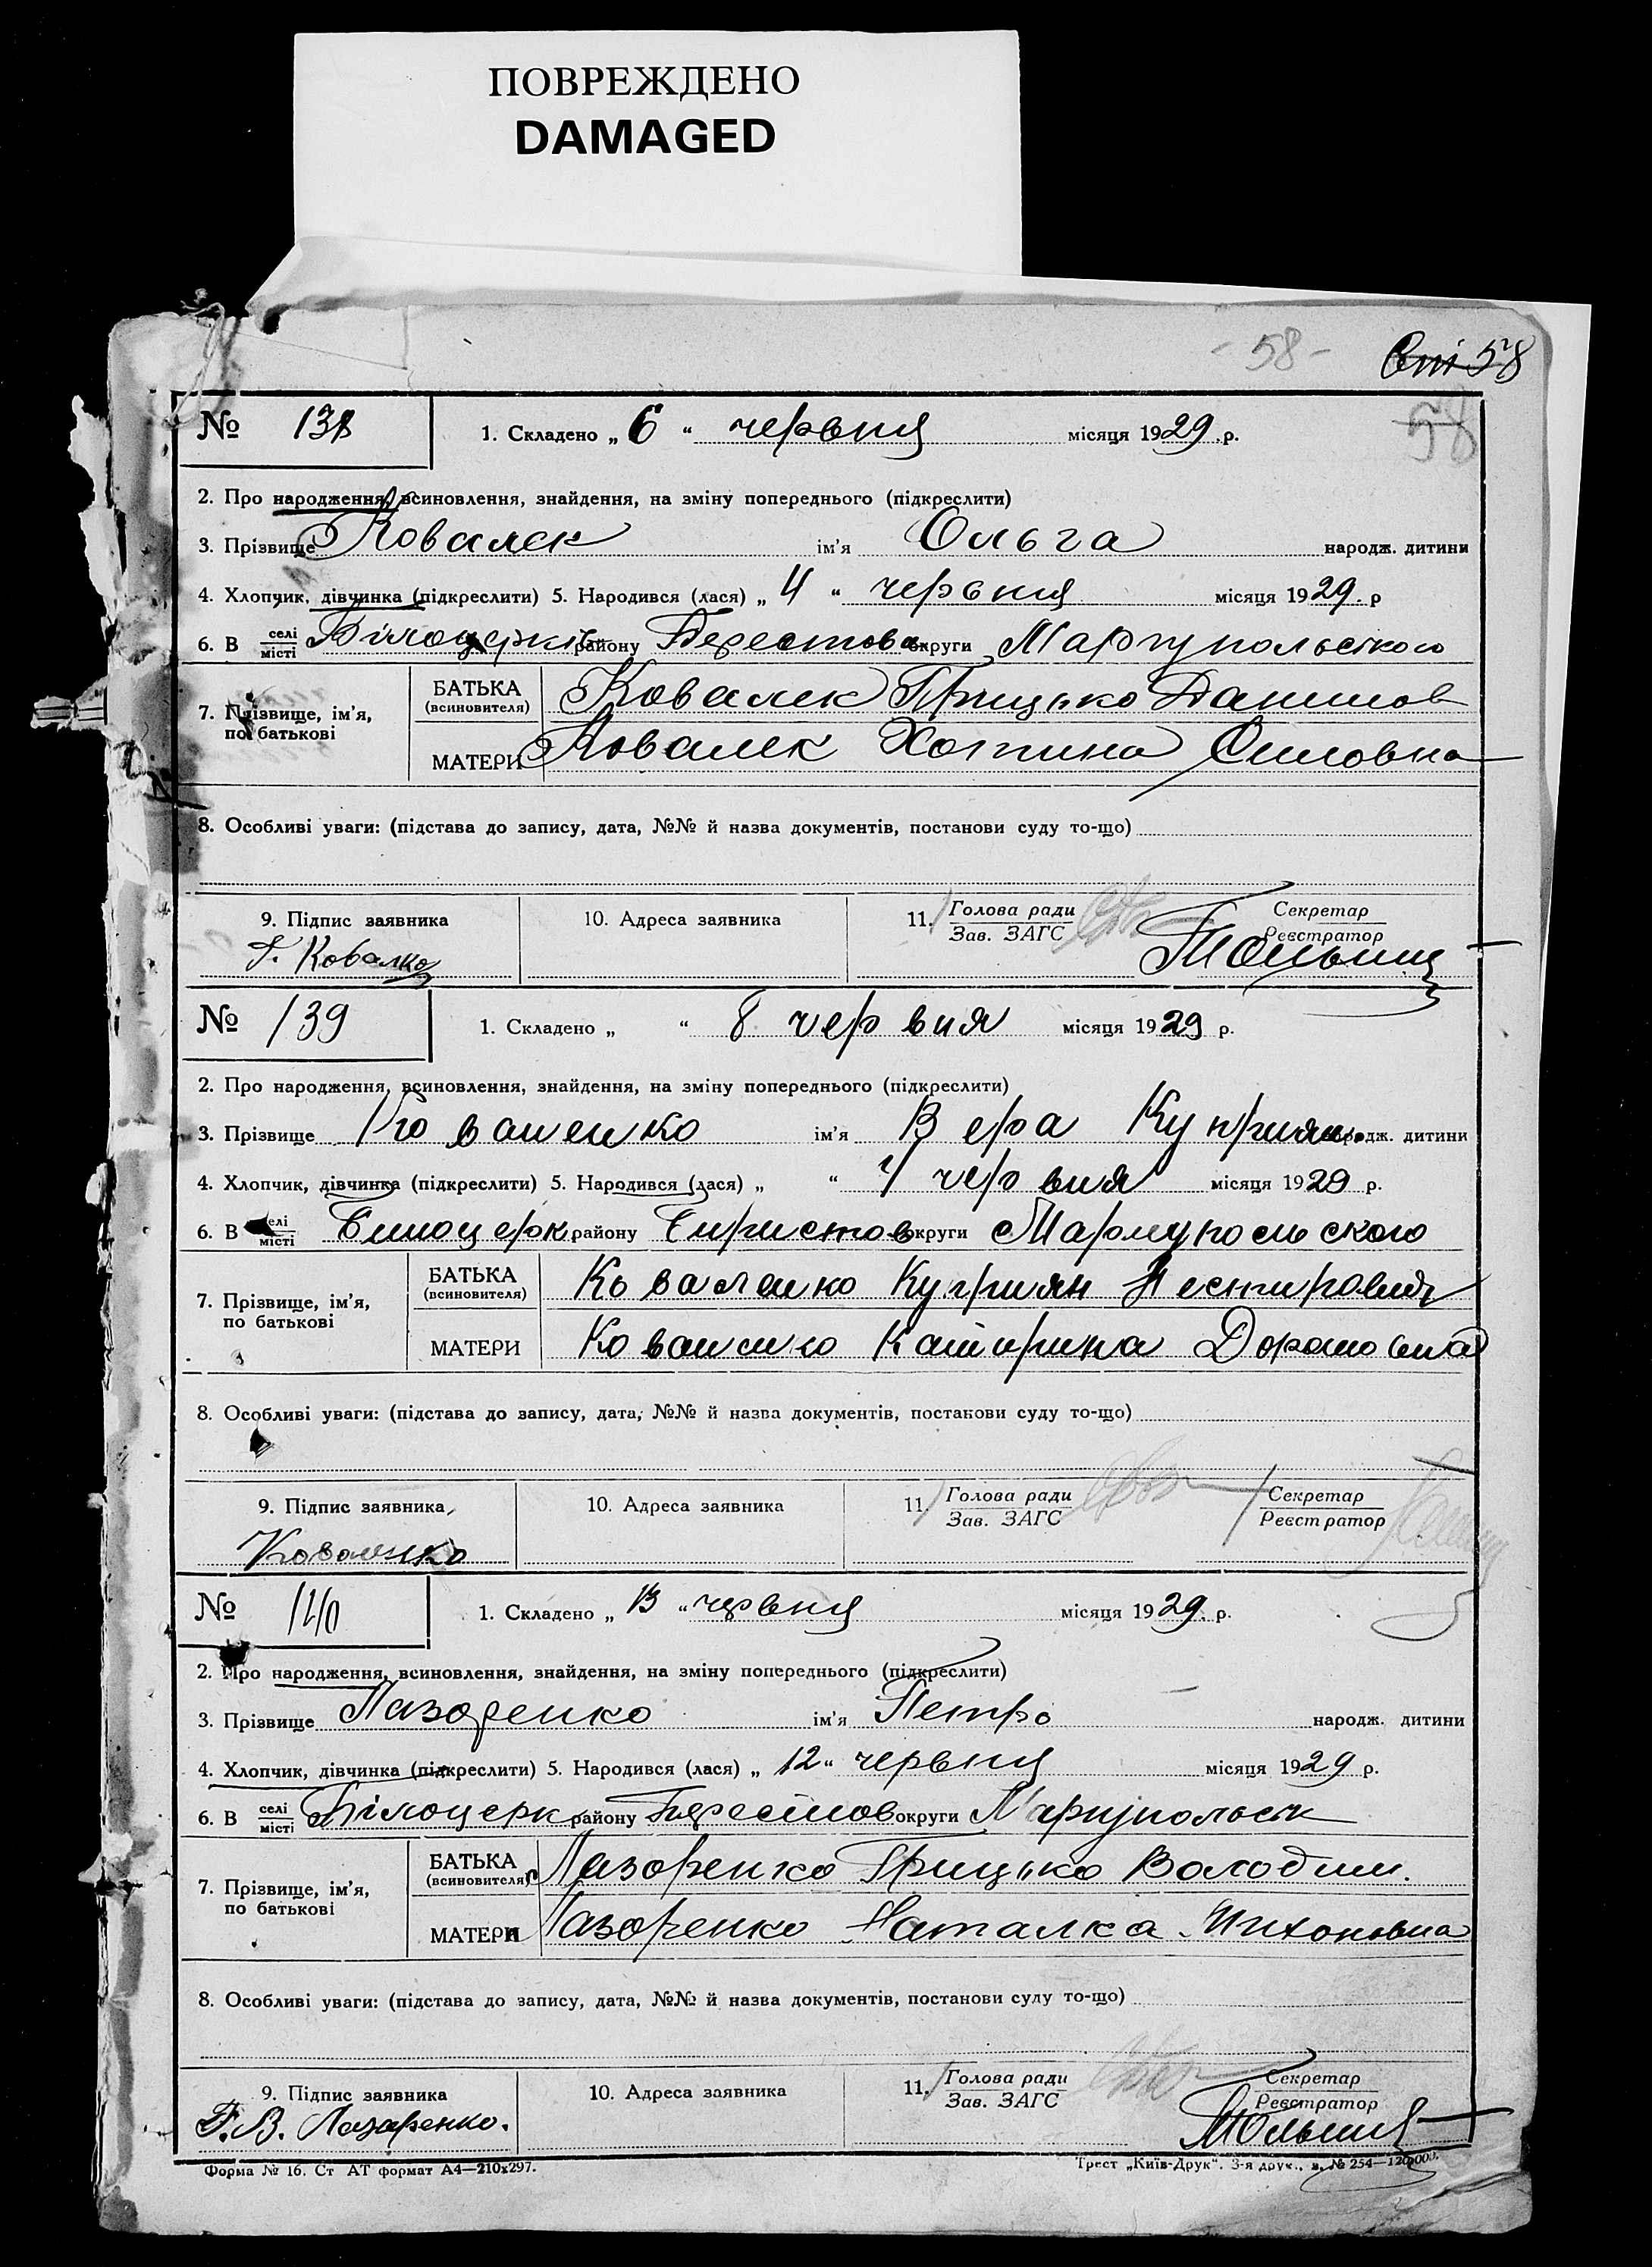 ПОВРЕЖДЕНО
DAMAGED
- 58 - 58
58
№ 138 1. Складено „ 6 “ червня місяця 1929 р.
2. Про народження, всиновлення, знайдення, на зміну попереднього (підкреслити)
3. Прізвище Ковалек ім'я Ольга народж. дитини
4. Хлопчик, дівчинка (підкреслити) 5. Народився (лася) „ 4 “ червня місяця 1929. р
6. В селі місті Білоцерків району Берестов округи Маріупольського
7. Прізвище, ім'я, по батькові БАТЬКА (всиновителя) Ковалек Грицько Данилов
МАТЕРИ Ковалек Хотина Силовна
8. Особливі уваги: (підстава до запису, дата, №№ й назва документів, постанови суду то-що)
9. Підпис заявника 10. Адреса заявника 11. Голова ради Зав. ЗАГС Секретар Реєстратор
Г. Ковалко
№ 139 1. Складено „ “ 8 червня місяця 1929 р.
2. Про народження, всиновлення, знайдення, на зміну попереднього (підкреслити)
3. Прізвище Коваленко ім'я Вера Куприян. народж. дитини
4. Хлопчик, дівчинка (підкреслити) 5. Народився (лася) „ “ червня місяця 1929 р.
6. В селі місті Билоцерк району Биристов округи Мармупольского
7. Прізвище, ім'я, по батькові БАТЬКА (всиновителя) Коваленко Куприян Нестирович
МАТЕРИ Коваленко Катирина
8. Особливі уваги: (підстава до запису, дата, №№ й назва документів, постанови суду то-що)
9. Підпис заявника 10. Адреса заявника 11. Голова ради Зав. ЗАГС Секретар Реєстратор
Коваленко
№ 140 1. Складено „ 13 “ червня місяця 1929. р.
2. Про народження, всиновлення, знайдення, на зміну попереднього (підкреслити)
3. Прізвище Лазоренко ім'я Петро народж. дитини
4. Хлопчик, дівчинка (підкреслити) 5. Народився (лася) „ 12 “ червня місяця 1929 р.
6. В селі місті Білоцерк району Берестов округи Маріупольськ
7. Прізвище, ім'я, по батькові БАТЬКА (всиновителя) Лазоренко Грицько Володим.
МАТЕРИ Лазоренко Наталка Тихоновна
8. Особливі уваги: (підстава до запису, дата, №№ й назва документів, постанови суду то-що)
9. Підпис заявника 10. Адреса заявника 11. Голова ради Зав. ЗАГС Секретар Реєстратор
Г. В. Лазаренко.
Форма № 16. Ст АТ формат А4—210х297. Трест „Київ-Друк“. 3-я друк., з. № 254—120.000.